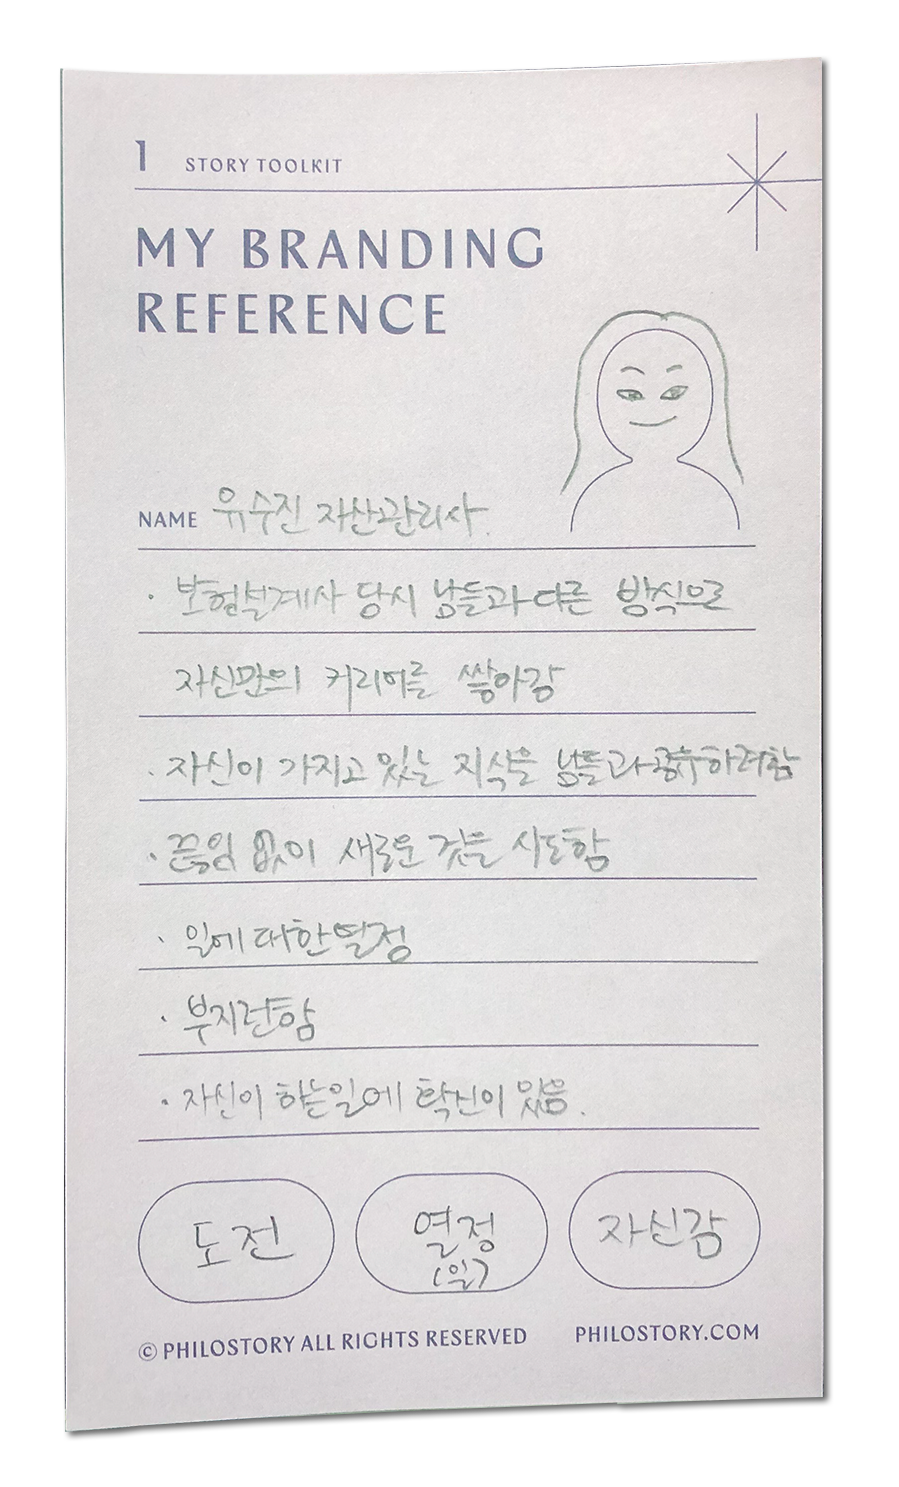 1 STORY TOOLKIT
MY BRANDING
REFERENCE
NAME 유수진 자산관리사.
· 보험설계사 당시 남들과 다른 방식으로
자신만의 커리어를 쌓아감
· 자신이 가지고 있는 지식을 남들과 공유하려함
· 끊임 없이 새로운 것을 시도함
· 일에 대한 열정
· 부지런함
· 자신이 하는일에 확신이 있음.
도전 열정 자신감
(일)
© PHILOSTORY ALL RIGHTS RESERVED PHILOSTORY.COM